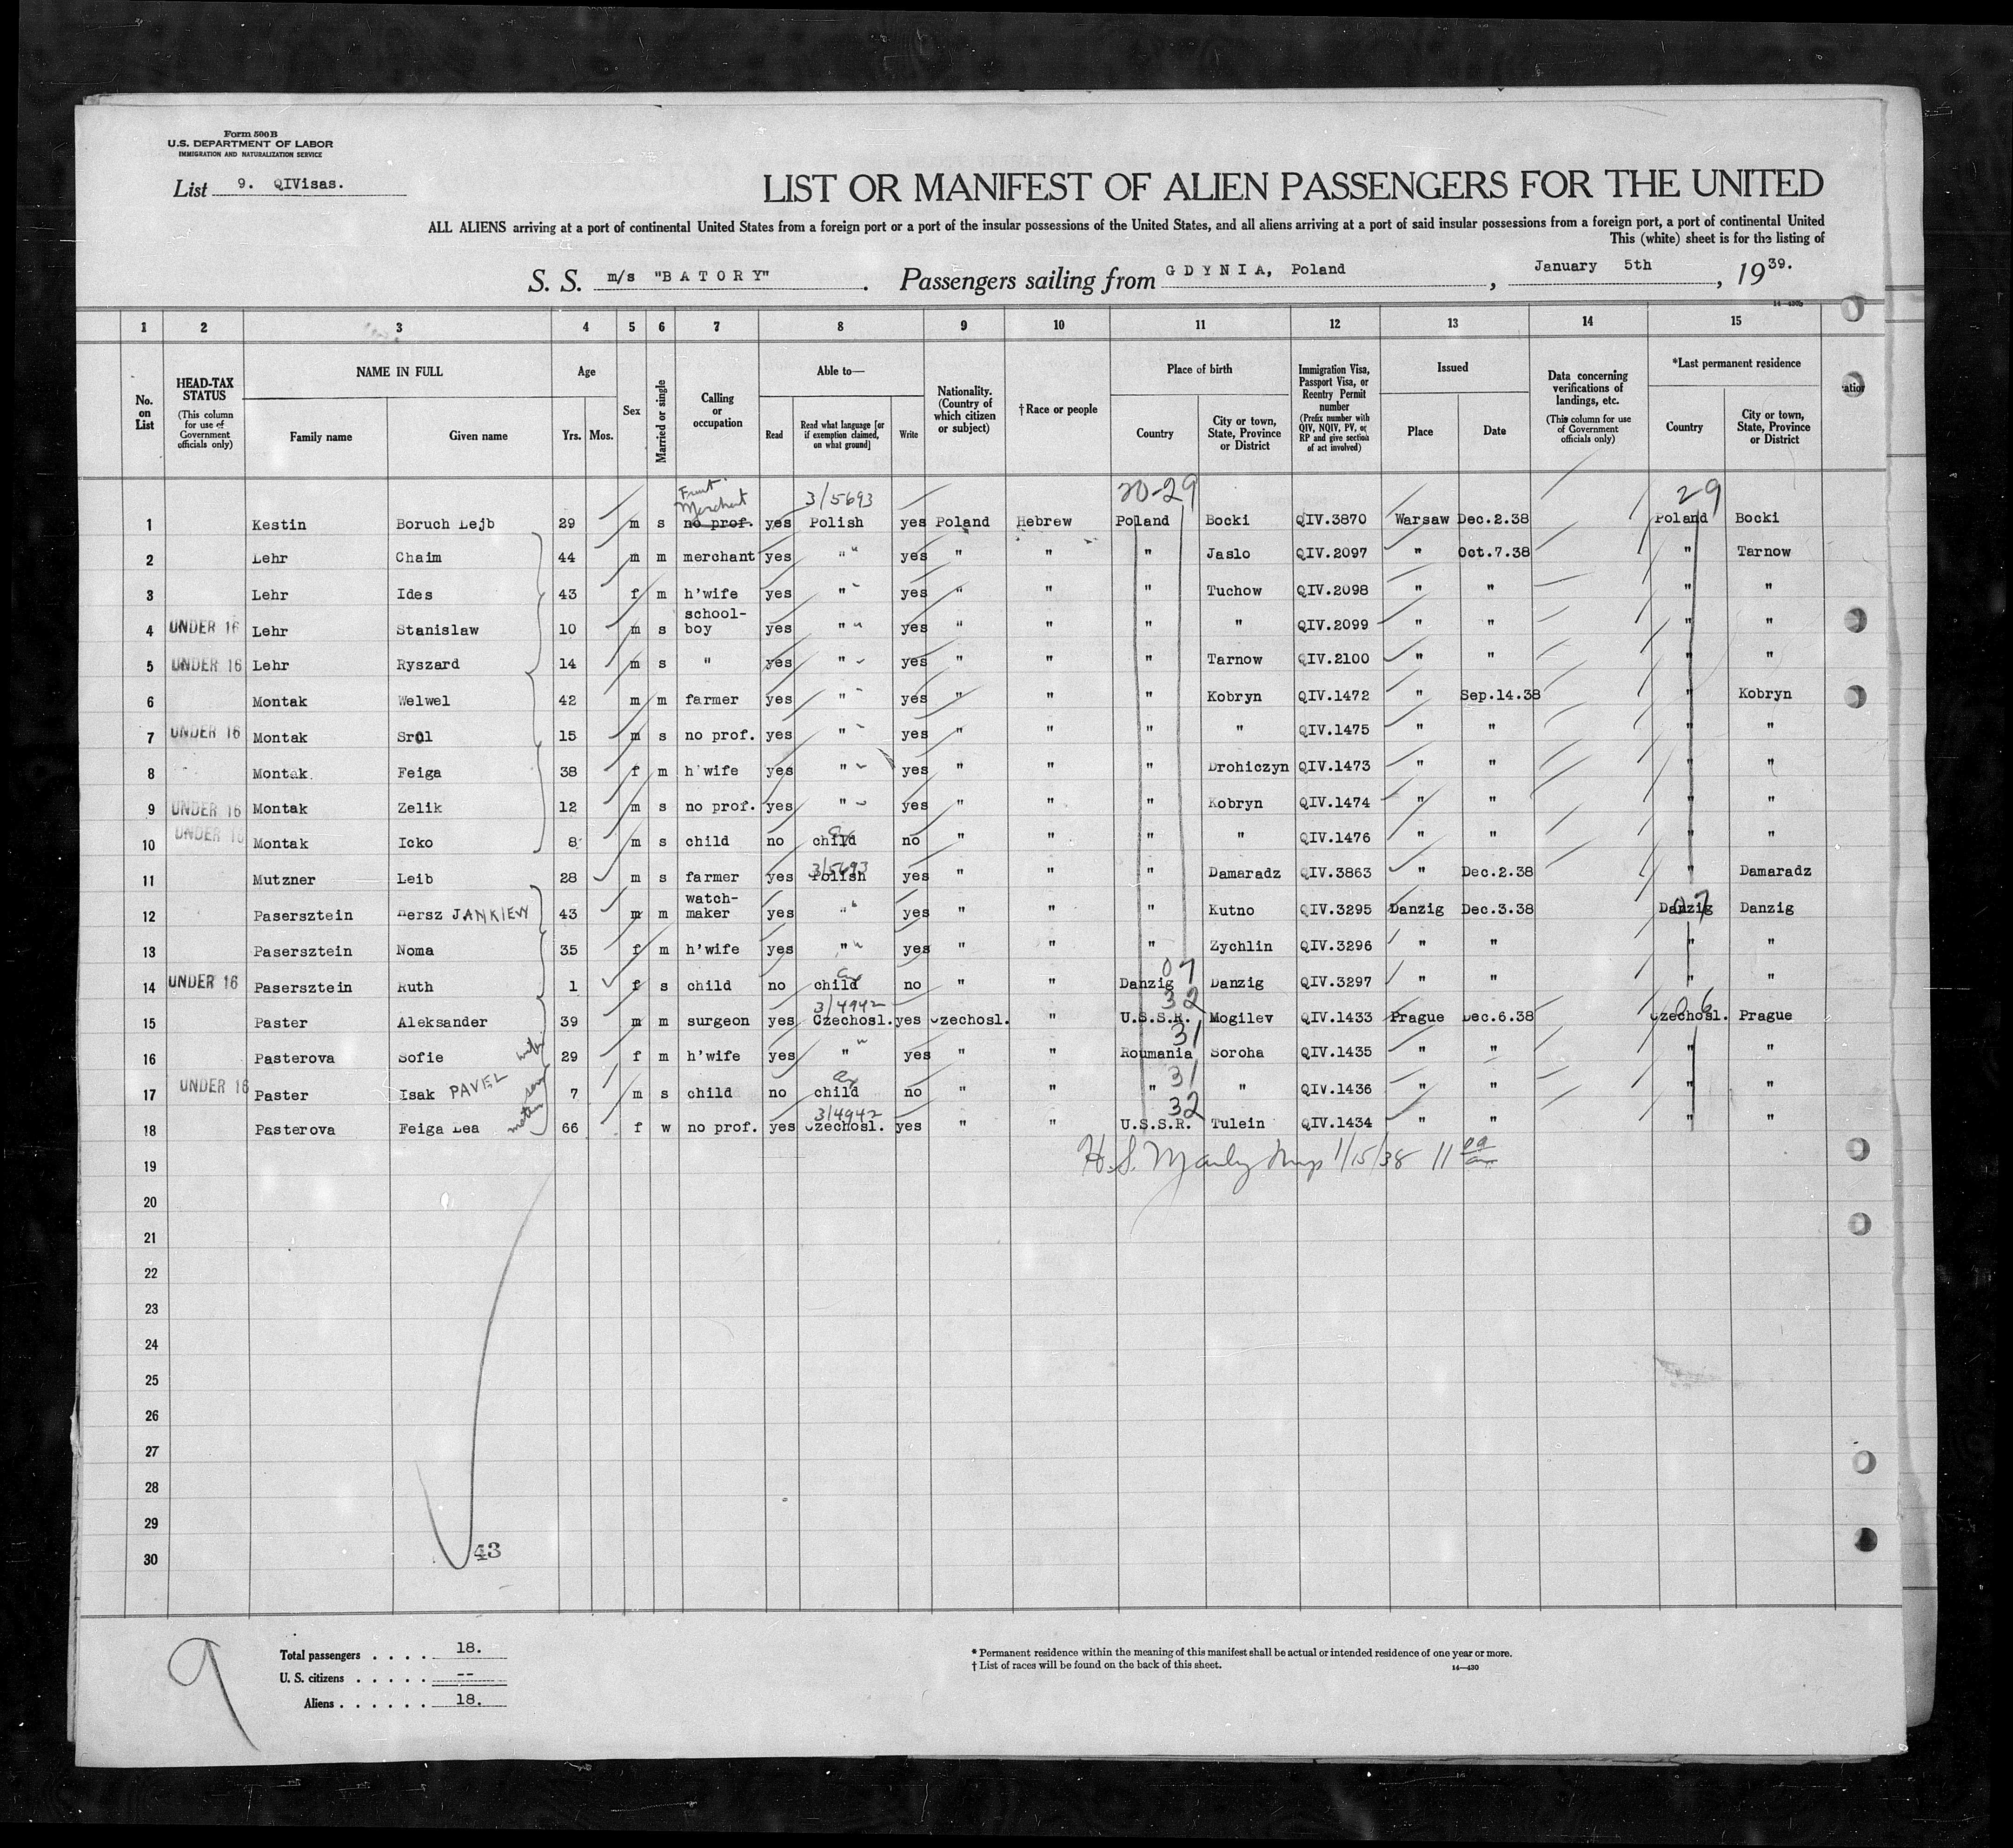 Form 500B
U.S. DEPARTMENT OF LABOR
IMMIGRATION AND NATURALIZATION SERVICE
List 9. QIVisas.
LIST OR MANIFEST OF ALIEN PASSENGERS FOR THE UNITED
ALL ALIENS arriving at a port of continental United States from a foreign port or a port of the insular possessions of the United States, and all aliens arriving at a port of said insular possessions from a foreign port, a port of continental United
This (white) sheet is for the listing of
S. S. m/s "BATORY". Passengers sailing from GDYNIA, Poland, January 5th, 1939.
14-430b
1 2 3 4 5 6 7 8 9 10 11 12 13 14 15
No. on List
HEAD-TAX STATUS (This column for use of Government officials only)
NAME IN FULL Family name Given name
Age Yrs. Mos.
Sex
Married or single
Calling or occupation
Able to— Read Read what language [or if exemption claimed, on what ground] Write
Nationality. (Country of which citizen or subject)
†Race or people
Place of birth Country City or town, State, Province or District
Immigration Visa, Passport Visa, or Reentry Permit number (Prefix number with QIV, NQIV, PV, or RP and give section of act involved)
Issued Place Date
Data concerning verifications of landings, etc. (This column for use of Government officials only)
*Last permanent residence Country City or town, State, Province or District
Merchant 3/5693 20-29 29
1 Kestin Boruch Lejb 29 m s no prof. yes Polish yes Poland Hebrew Poland Bocki QIV.3870 Warsaw Dec.2.38 Poland Bocki
2 Lehr Chaim 44 m m merchant yes " yes " " " Jaslo QIV.2097 " Oct.7.38 " Tarnow
3 Lehr Ides 43 f m h'wife yes " yes " " " Tuchow QIV.2098 " " " "
4 UNDER 16 Lehr Stanislaw 10 m s school-boy yes " yes " " " " QIV.2099 " " " "
5 UNDER 16 Lehr Ryszard 14 m s " yes " yes " " " Tarnow QIV.2100 " " " "
6 Montak Welwel 42 m m farmer yes " yes " " " Kobryn QIV.1472 " Sep.14.38 " Kobryn
7 UNDER 16 Montak Srol 15 m s no prof. yes " yes " " " " QIV.1475 " " " "
8 Montak Feiga 38 f m h'wife yes " yes " " " Drohiczyn QIV.1473 " " " "
9 UNDER 16 Montak Zelik 12 m s no prof. yes " yes " " " Kobryn QIV.1474 " " " "
10 UNDER 16 Montak Icko 8 m s child no child no " " " " QIV.1476 " " " "
3/5693
11 Mutzner Leib 28 m s farmer yes Polish yes " " " Damaradz QIV.3863 " Dec.2.38 " Damaradz
07
12 Pasersztein Hersz JANKIEW 43 m m watch-maker yes " yes " " " Kutno QIV.3295 Danzig Dec.3.38 Danzig Danzig
13 Pasersztein Noma 35 f m h'wife yes " yes " " " Zychlin QIV.3296 " " " "
07
14 UNDER 16 Pasersztein Ruth 1 f s child no child no " " Danzig Danzig QIV.3297 " " " "
3/4942 32 06
15 Paster Aleksander 39 m m surgeon yes Czechosl. yes Czechosl. " U.S.S.R. Mogilev QIV.1433 Prague Dec.6.38 Czechosl. Prague
31
16 Pasterova Sofie wife 29 f m h'wife yes " yes " " Roumania Soroha QIV.1435 " " " "
31
17 UNDER 16 Paster Isak PAVEL son 7 m s child no child no " " " " QIV.1436 " " " "
3/4942 32
18 Pasterova Feiga Lea mother 66 f w no prof. yes Czechosl. yes " " U.S.S.R. Tulein QIV.1434 " " " "
19 1/15/38 11
20
21
22
23
24
25
26
27
28
29
30
43
9
Total passengers . . . . 18.
U. S. citizens . . . . . --
Aliens . . . . . . 18.
* Permanent residence within the meaning of this manifest shall be actual or intended residence of one year or more.
† List of races will be found on the back of this sheet.
14—430